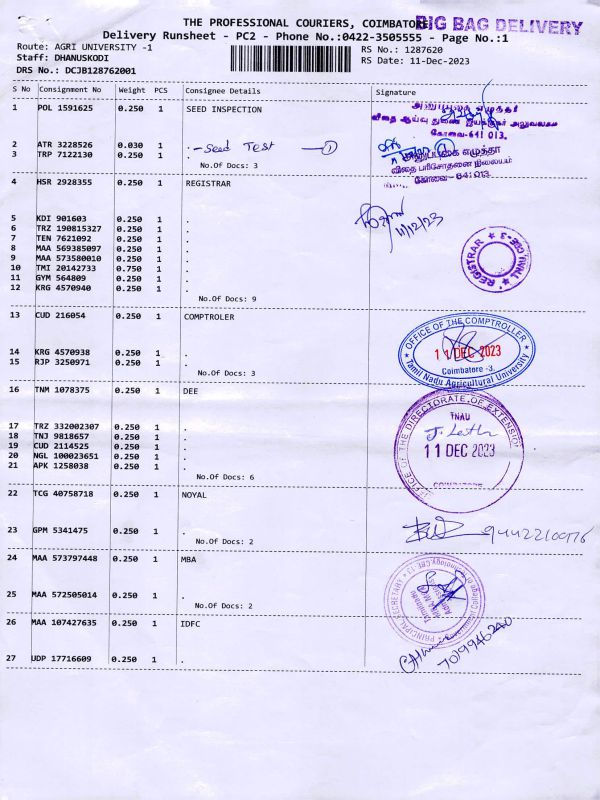 THE PROFESSIONAL COURIERS, COIMBATORE
BIG BAG DELIVERY
Delivery Runsheet - PC2 - Phone No.:0422-3505555 - Page No.:1
Route: AGRI UNIVERSITY -1
RS No.: 1287620
Staff: DHANUSKODI
RS Date: 11-Dec-2023
DRS No.: DCJB128762001
S No Consignment No Weight PCS Consignee Details Signature
1 POL 1591625 0.250 1 SEED INSPECTION
அனுப்புகை எழுத்தர்
விதை ஆய்வு துணை இயக்குநர் அலுவலகம்
கோவை-641 013.
2 ATR 3228526 0.030 1 . -Seed Test ①
3 TRP 7122130 0.250 1 .
No.Of Docs: 3
அனுப்புகை எழுத்தர்
விதை பரிசோதனை நிலையம்
கோவை - 641 013.
4 HSR 2928355 0.250 1 REGISTRAR
11/12/23
5 KDI 901603 0.250 1 .
6 TRZ 190815327 0.250 1 .
7 TEN 7621092 0.250 1 .
8 MAA 569385097 0.250 1 .
9 MAA 573580010 0.250 1 .
10 TMI 20142733 0.750 1 .
11 GYM 564809 0.250 1 .
12 KRG 4570940 0.250 1 .
No.Of Docs: 9
REGISTRAR ★ TNAU, CBE-3 ★
13 CUD 216054 0.250 1 COMPTROLER
14 KRG 4570938 0.250 1 .
15 RJP 3250971 0.250 1 .
No.Of Docs: 3
OFFICE OF THE COMPTROLLER
11 DEC 2023
Coimbatore -3.
Tamil Nadu Agricultural University
16 TNM 1078375 0.250 1 DEE
17 TRZ 332002307 0.250 1 .
18 TNJ 9818657 0.250 1 .
19 CUD 2114525 0.250 1 .
20 NGL 100023651 0.250 1 .
21 APK 1258038 0.250 1 .
No.Of Docs: 6
OFFICE OF THE DIRECTORATE OF EXTENSION
TNAU
11 DEC 2023
COIMBATORE
22 TCG 40758718 0.250 1 NOYAL
23 GPM 5341475 0.250 1 .
No.Of Docs: 2
24 MAA 573797448 0.250 1 MBA
25 MAA 572505014 0.250 1 .
No.Of Docs: 2
PRINCIPAL SECRETARY
26 MAA 107427635 0.250 1 IDFC
27 UDP 17716609 0.250 1 .